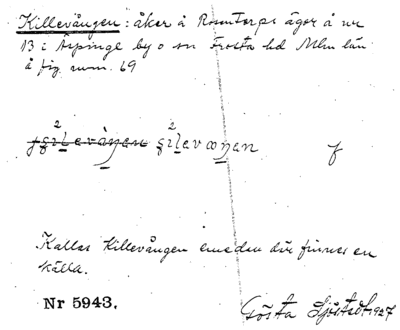 Killevången: åker å Rosentorps ägor å nr
13 i Äspinge by o sn Frosta hd Mlm län
å fig. num. 69
f
Kallas Killevången emedan där finnes en
källa.
Nr 5943.
Gösta Sjöstedt 1927